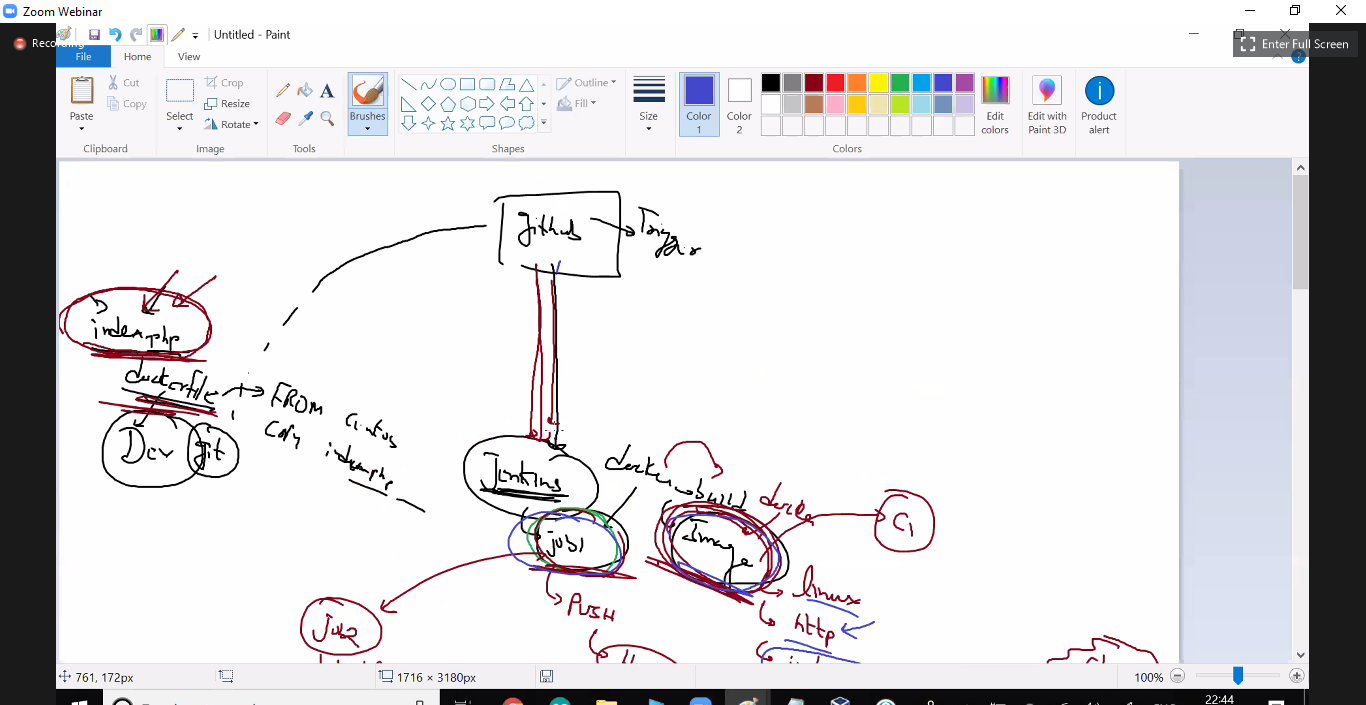 Zoom Webinar
Recording
Untitled - Paint
Enter Full Screen
File
Home
View
Paste
Cut
Copy
Clipboard
Select
Crop
Resize
Rotate
Image
A
Tools
Brushes
Shapes
Outline
Fill
Size
Color
1
Color
2
Edit
colors
Colors
Edit with
Paint 3D
Product
alert
github
Trigger
index.php
dockerfile
FROM centos
Copy index.php
Dev
git
Jenkins
docker build
docker
job1
Image
C1
PUSH
Job2
linux
http
761, 172px
1716 × 3180px
100%
22:44